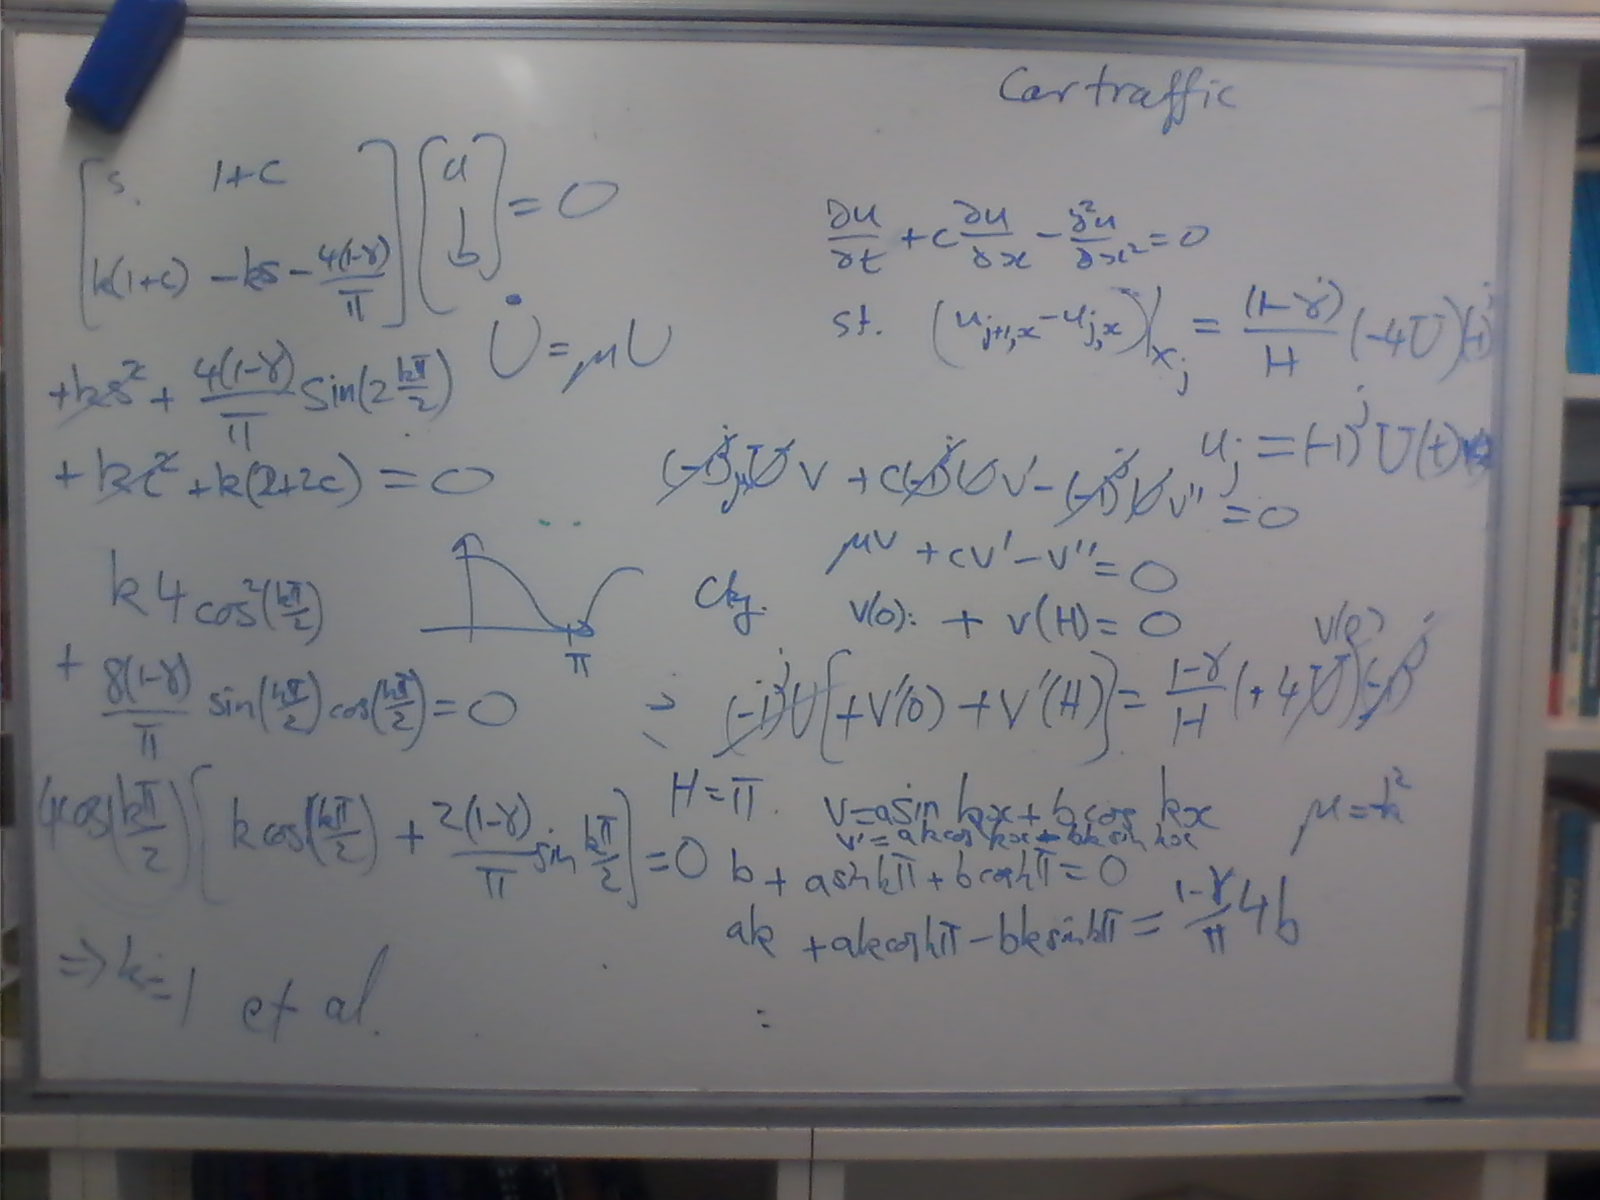 Car traffic
[s 1+c; k(1+c) -ks - 4(1-γ)/π] [a; b] = 0
U̇ = μU
+ks² + 4(1-γ)/π sin(2 kπ/2)
+ kc² + k(2+2c) = 0
k4cos²(kπ/2)
+ 8(1-γ)/π sin(kπ/2) cos(kπ/2) = 0
π
4cos(kπ/2) [k cos(kπ/2) + 2(1-γ)/π sin kπ/2] = 0
⇒ k=1 et al.
∂u/∂t + c ∂u/∂x - ∂²u/∂x² = 0
st. (u_{j+1,x} - u_{j,x})|_{x_j} = (1-γ)/H (-4U)(-1)^j
u_j = (-1)^j U(t)
(-1)^j μU v + c(-1)^j U v' - (-1)^j U v'' = 0
μv + cv' - v'' = 0
v(0): + v(H) = 0
v(0)
(-1)^j U [+v'(0) + v'(H)] = 1-γ/H (+4U)(-1)^j
H = π
v = a sin kx + b cos kx
μ = -k²
v' = ak cos kx - bk sin kx
b + a sin kπ + b cos kπ = 0
ak + ak cos kπ - bk sin kπ = 1-γ/π 4b
: